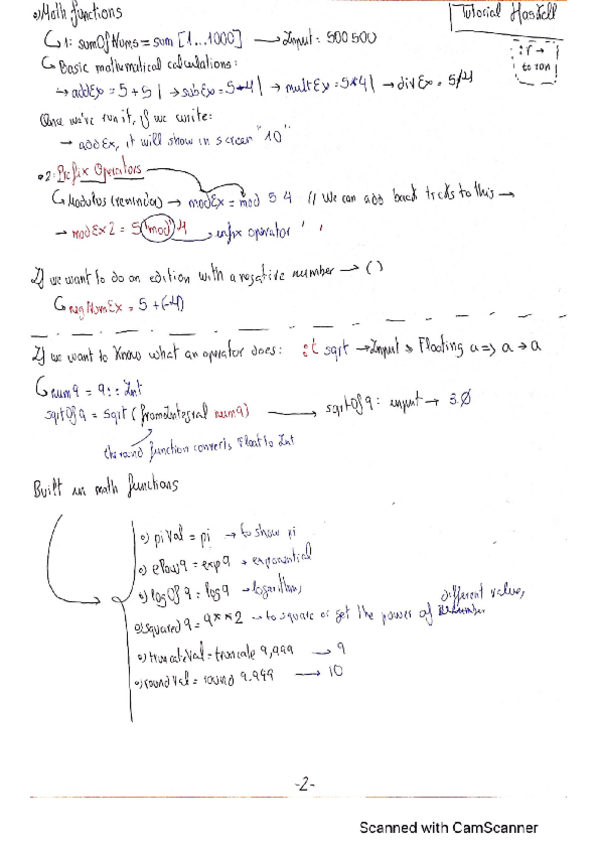 o) Math functions
Tutorial Haskell
1: sumOfNums = sum [1...1000] → Input: 500500
:r → to run!
Basic mathematical calculations:
→ addEx = 5 + 5 | → subEx = 5-4 | → multEx = 5*4 | → divEx = 5/4
Once we've run it, if we write:
→ addEx, it will show in screen "10"
o2: Prefix Operators
Modulus (reminder) → modEx = mod 5 4 // We can add back ticks to this →
→ modEx2 = 5 `mod` 4 → infix operator
If we want to do an edition with a negative number → ()
negNumEx = 5 + (-4)
If we want to know what an operator does: :t sqrt → Input → Floating a => a → a
num9 = 9 :: Int
sqrtOf9 = sqrt (fromIntegral num9) → sqrtOf9: input → 3.0
the round function converts Float to Int
Built in math functions
o) piVal = pi → to show pi
o) ePow9 = exp 9 → exponential
o) logOf9 = log 9 → logarithms
o) squared9 = 9**2 → to square or get the power of different value,
o) truncateVal = truncate 9,999 → 9
o) roundVal = round 9.999 → 10
-2-
Scanned with CamScanner